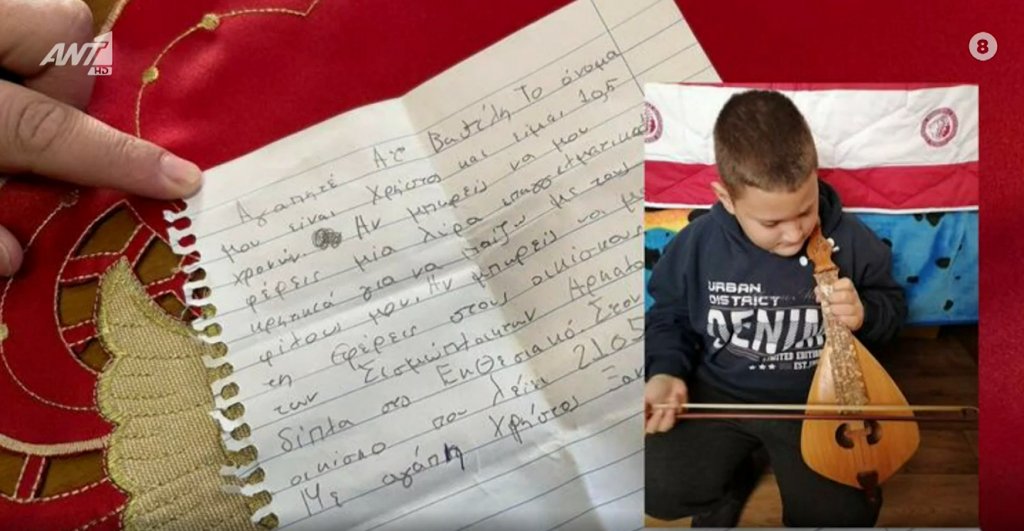 ANT1
HD
8
Αγαπητέ Αϊ Βασίλη Το όνομα
μου είναι Χρήστος και είμαι 10,5
χρονών. Αν μπορείς να μου
φέρεις μία λύρα επαγγελματικιά
κρητικιά για να παίζω με τους
φίλους μου. Αν μπορείς να με
τη φέρεις στους οικίσκους
των Σεισμόπληκτων
δίπλα στο Εκθεσιακό. Στον
οικίσκο που λέει 2105
Με αγάπη Χρήστος Ξαν
URBAN
DISTRICT
DENIM
LIMITED EDITION